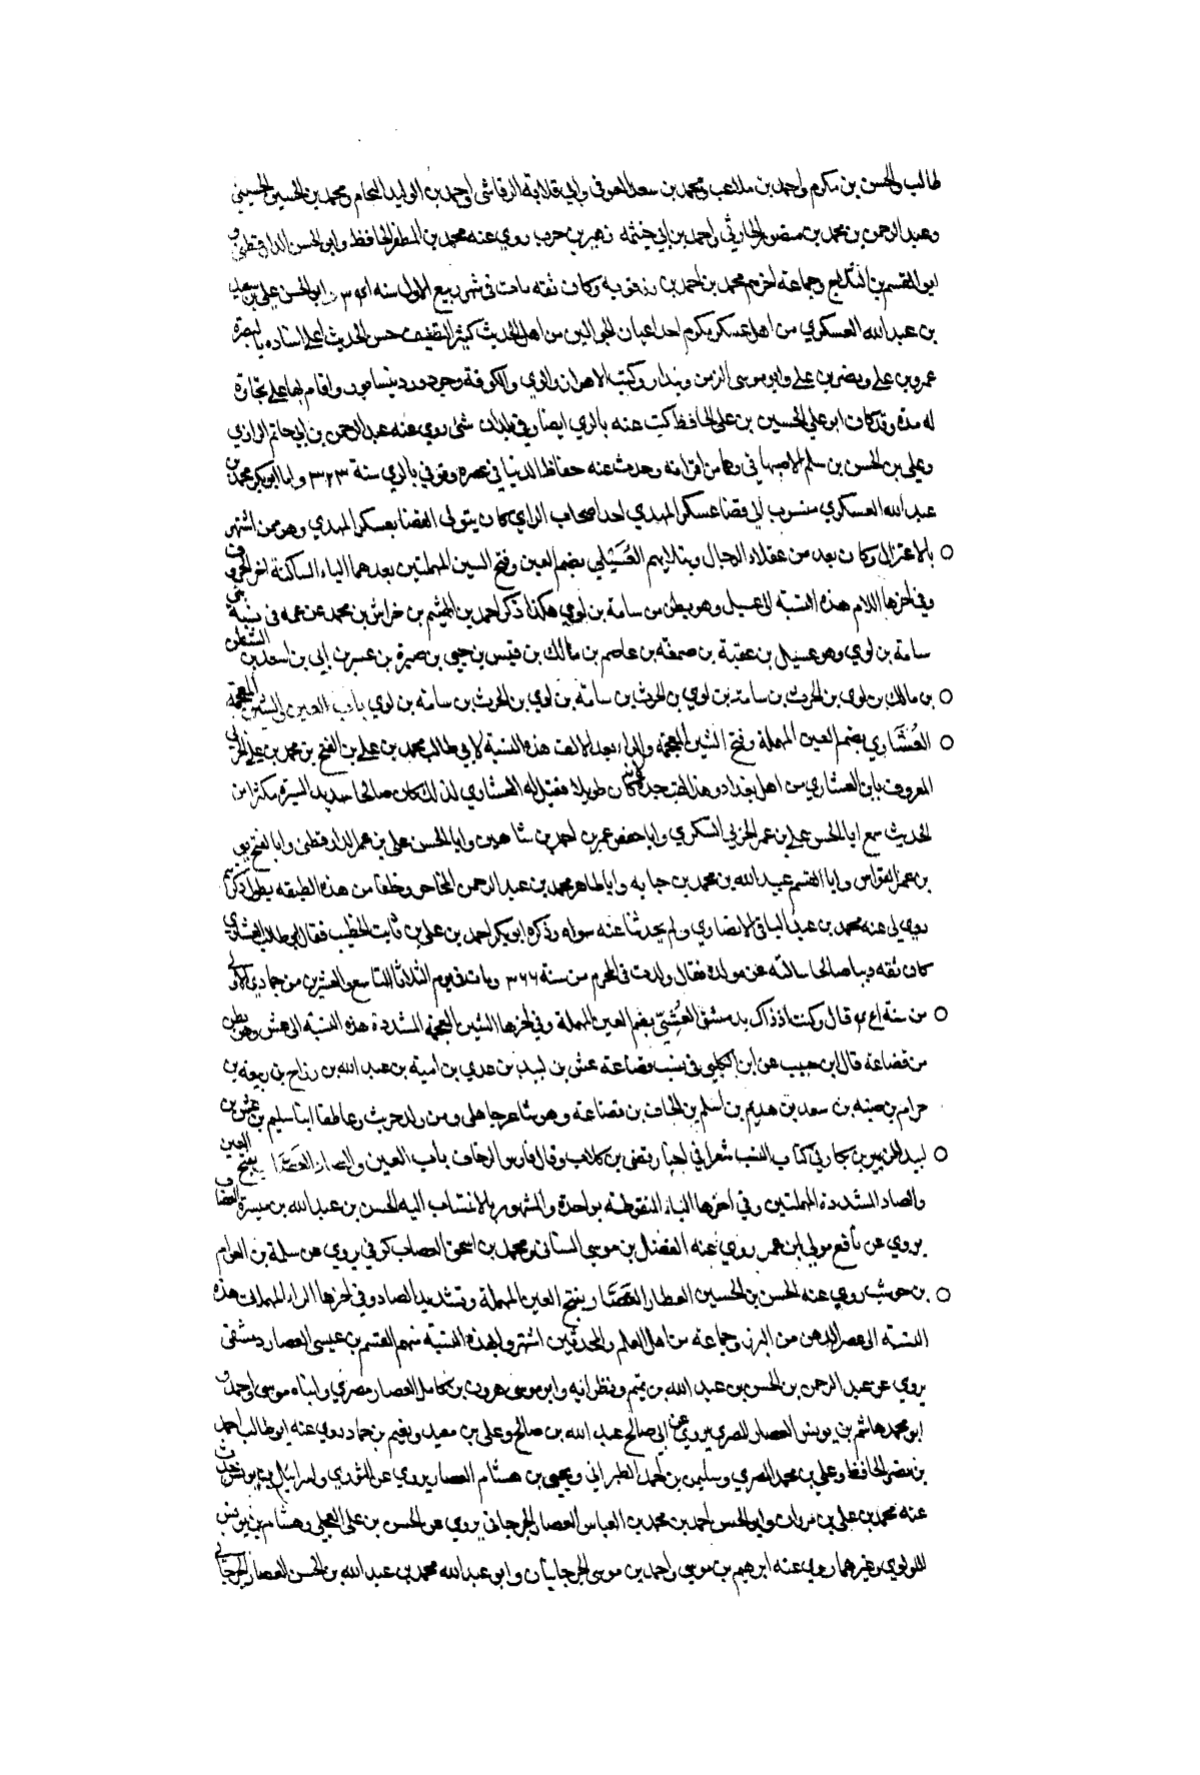 طالب والحسن بن مكرم واحمد بن ملاعب ومحمد بن سعد العوفي وابي قلابة الرقاشي واحمد بن الوليد الفحام ومحمد بن الحسين الحسيني
وعبد الرحمن بن محمد بن منصور الحارثي واحمد بن ابي خيثمه زهير بن حرب روي عنه محمد بن المظفر الحافظ وابو الحسن الدارقطني و
ابو القسم بن الثلاج وجماعة اخرهم محمد بن احمد بن رزقويه وكان ثقه مات في شهر ربيع الاول سنه وابو الحسن علي بن سعيد
بن عبد الله العسكري من اهل عسكر مكرم احد اعيان الجوالين من اهل الحديث كثير التصنيف حسن الحديث اعلا اسناده بالبصرة
عمرو بن علي ونصر بن علي وابو موسى الزمن وبندار وكتب الاهواز والري والكوفة وورد نيسابور واقام بها علي تجارة
له مدة وقد كان ابو علي الحسين بن علي الحافظ كتب عنه بالري ايضا روي عنه عبد الرحمن بن ابي حاتم الرازي
وعلي بن الحسن بن سلم الاصبهاني وهما من اقرانه وحدث عنه حفاظ الدنيا في عصره وتوفي بالري سنة ٣٢٣ واما ابو بكر محمد بن
عبد الله العسكري منسوب الي قضا عسكر المهدي احد اصحاب الراي كان يتولي القضا بعسكر المهدي وهو ممن اشتهر
بالاعتزال وكان يعد من عقلاء الرجال العُسَيْلي بضم العين وفتح السين المهملتين بعدهما الياء الساكنة اخر الحروف
وفي اخرها اللام هذه النسبة الى عسيل وهو بطن من سامة بن لوي هكذا ذكر احمد بن الهيثم بن خراش بن محمد عن عمه في نسب بني
سامة بن لوي وهو عسيل بن عقبة بن صمعه بن عاصم بن مالك بن قيس بن حيي بن صبرة بن
بن مالك بن لوي بن الحرث بن سامة بن لوي بن الحرث بن سامة بن لوي بن الحرث بن سامة بن لوي باب العين والشين المعجمة
العُشَاري بضم العين المهملة وفتح الشين المعجمة والراء بعد الالف هذه النسبة لابي طالب محمد بن علي بن الفتح بن محمد بن علي الحربي
المعروف بابن العشاري من اهل بغداد وهذا لقب جده لانه كان طويلا فقيل له العشاري لذلك كان صالحا سديد السيرة مكثرا من
الحديث سمع ابا الحسن علي بن عمر الحربي السكري وابا حفص عمر بن احمد بن شاهين وابا الحسن علي بن عمر الدارقطني وابا الفتح يوسف
بن عمر القواس وابا القسم عبيد الله بن محمد بن حبابه وابا طاهر محمد بن عبد الرحمن المخلص وخلقا من هذه الطبقه يطول ذكرهم
روي لي عنه محمد بن عبد الباقي الانصاري ولم يحدثنا عنه سواه وذكره ابو بكر احمد بن علي بن ثابت الخطيب فقال ابو طالب العشاري
كان ثقه دينا صالحا سالته عن مولده فقال ولدت في المحرم من سنة ٣٦٦ ومات في يوم الثلاثا التاسع والعشرين من جمادي الاولي
من سنة قال وكنت اذ ذاك بدمشق العُشِّيّ بضم العين المهملة وفي اخرها الشين المعجمة المشددة هذه النسبة الى عش وهو بطن
من قضاعة قال ابن حبيب عن ابن الكلبي في نسب قضاعة عش بن لبيد بن عدي بن امية بن عبد الله بن رزاح بن ربيعه بن
حرام بن ضنه بن سعد بن هذيم بن اسلم بن الحاف بن قضاعة وهو شاعر جاهلي ومن ولده حريث وعاطفا ابنا سليم بن عش بن
لبيد الزبير بن بكار في كتاب النسب شعرا في اخبار قصي بن كلاب وقال فارس الرحاف باب العين والصاد العَصَّاب بفتح العين
والصاد المشددة المهملتين وفي اخرها الباء المنقوطة بواحدة والمشهور بالانتساب اليه الحسن بن عبد الله بن ميسرة العصاب
يروي عن نافع مولى ابن عمر روي عنه الفضل بن موسي السيناني ومحمد بن اسحق العصاب كوفي يروي عن سلمة بن العوام
بن حوشب روي عنه الحسن بن الحسين العطار العَصَّار بفتح العين المهملة وتشديد الصاد وفي اخرها الراء المهملات هذه
النسبة الى عصر الدهن من البزر وجماعة من اهل العلم والمحدثين اشتهروا بهذه النسبة منهم القسم بن عيسى العصار دمشقي
يروي عن عبد الرحمن بن الحسن بن عبد الله بن تميم ونظرائه وابو موسى هرون بن كامل العصار مصري وابناه موسى واحمد و
ابو محمد هاشم بن يونس العصار المصري يروي عن ابي صالح عبد الله بن صالح وعلي بن معبد ونعيم بن حماد روي عنه ابو طالب احمد
بن نصر الحافظ وعلي بن محمد المصري وسليمن بن احمد الطبراني ويحيى بن هشام العصار يروي عن الثوري واسرائيل بن يونس حدث
عنه محمد بن علي بن مروان وابو الحسن احمد بن محمد بن العباس العصار الجرجاني يروي عن الحسن بن علي العجلي وهشام بن يونس
اللولوي وغيرهما روي عنه ابرهيم بن موسي واحمد بن موسى الجرجانيان وابو عبد الله محمد بن عبد الله بن الحسن العصار الجرجاني